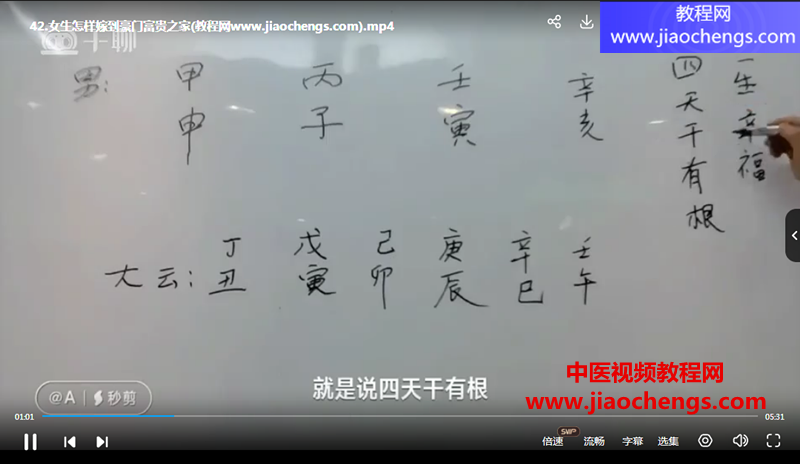 42.女生怎样嫁到豪门富贵之家(教程网www.jiaochengs.com).mp4
千聊
教程网
www.jiaochengs.com
男: 甲 丙 壬 辛
申 子 寅 亥
四天干有根
一生幸福
大云: 丁丑 戊寅 己卯 庚辰 辛巳 壬午
就是说四天干有根
@A 秒剪
中医视频教程网
www.jiaochengs.com
01:01
05:31
倍速
SVIP
流畅
字幕
选集